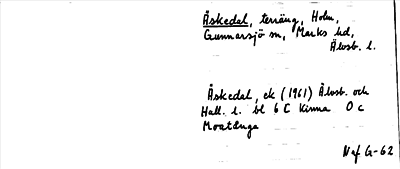 Åskedal, terräng, Holm,
Gunnarsjö sn, Marks hd,
Älvsb. l.
Åskedal, ek (1961) Älvsb. och
Hall. l. bl 6 C Kinna 0 c
Moatänga
Nef G-62